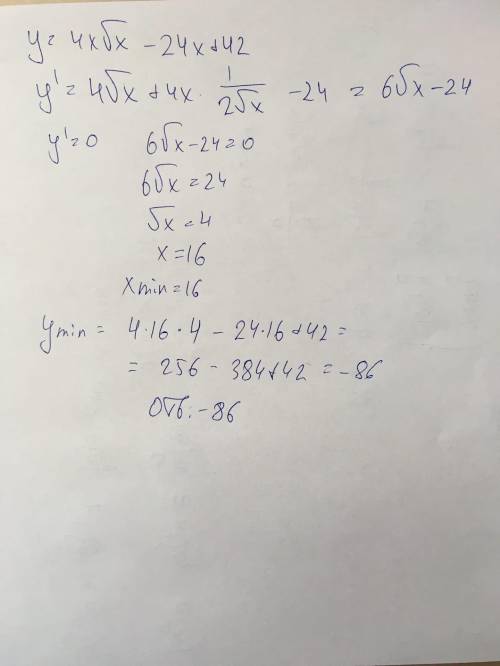 y = 4x√x - 24x + 42
y' = 4√x + 4x · 1/(2√x) - 24 = 6√x - 24
y' = 0 6√x - 24 = 0
6√x = 24
√x = 4
x = 16
xmin = 16
ymin = 4·16·4 - 24·16 + 42 =
= 256 - 384 + 42 = -86
Отв.: -86